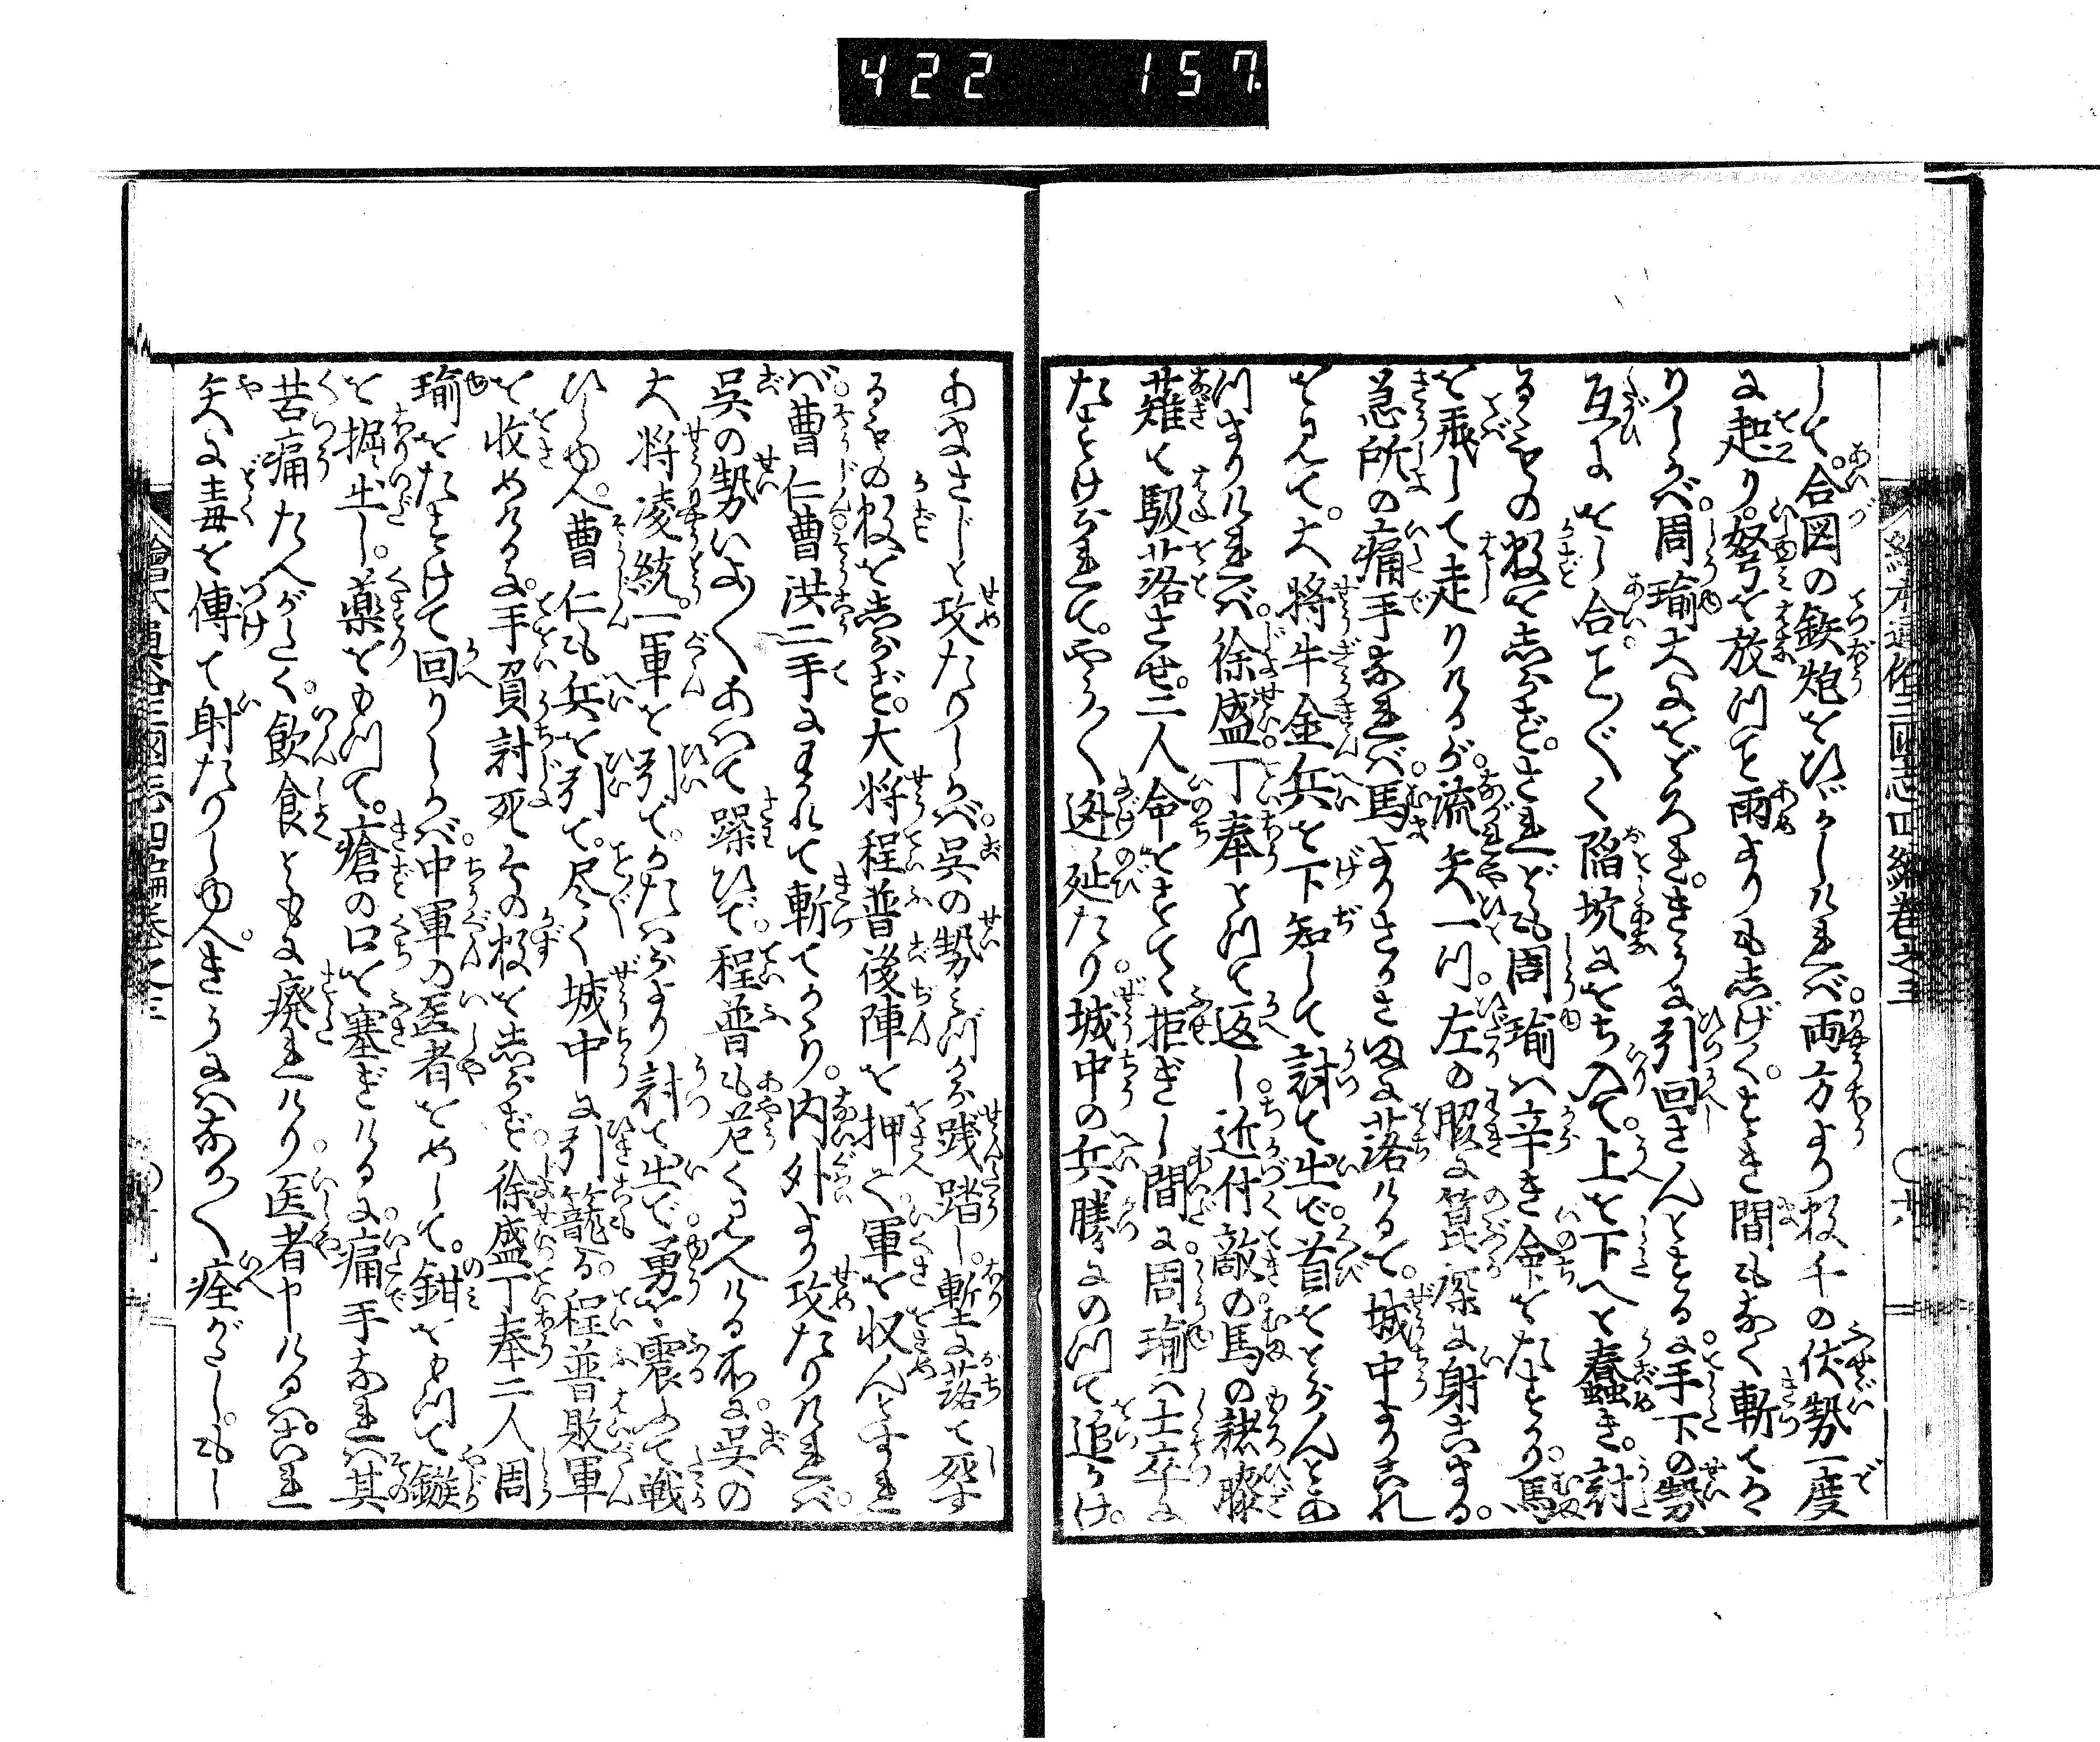 422 157
絵本通俗三国志四編巻之三
して。合図の鉄炮をひゞかしければ。両方より数千の伏勢一度
に起り。弩を放つこと雨よりもしげく。すき間もなく斬てかゝ
りしかば。周瑜大におどろき。きうに引回さんとするに。手下の勢
互におし合。こと〴〵く陥坑におち入て。上を下へと蠢き。討
るゝもの数をしらず。されども周瑜ハ辛き命をたすかり。馬
を飛して走りけるが。流矢一つ。左の脇に箆深に射こまる。
急所の痛手なれば。馬よりさかさまに落けるを。城中よりこれ
を見て。大将牛金兵を下知して討て出。首をとらんとあ
つまりければ。徐盛丁奉とつて返し。近付敵の馬の諸膝
薙で馺落させ。三人命をすてゝ拒ぎし間に。周瑜ハ士卒に
たすけられて。やう〳〵迯延たり。城中の兵勝にのつて追かけ。
あまさじと攻たりしかば。呉の勢みづから践踏し。塹に落て死す
るもの数をしらず。大将程普後陣を押て軍を収んとすれ
ば。曹仁曹洪二手にわかれて斬てかゝり。内外より攻たりければ。
呉の勢いよ〳〵あハて躁ひで。程普も危くみへける所に。呉の
大将凌統。一軍を引て。かたハらより討て出。勇を震ふて戦
ひしゆへ。曹仁も兵を引て。尽く城中に引籠る。程普敗軍
を收めけるに。手負討死その数をしらず。徐盛丁奉二人周
瑜をたすけて回りしかば。中軍の医者をめして。鉗をもつて鏃
を掘出し。薬をもつて。瘡の口を塞ぎけるに。痛手なれバ其
苦痛たへがたく。飲食ともに廃れけり。医者申けるハ。これ
矢に毒を傅て射たりしゆへ。きうにハなか〳〵痊がたし。もし
繪本通俗三國志四編巻之三